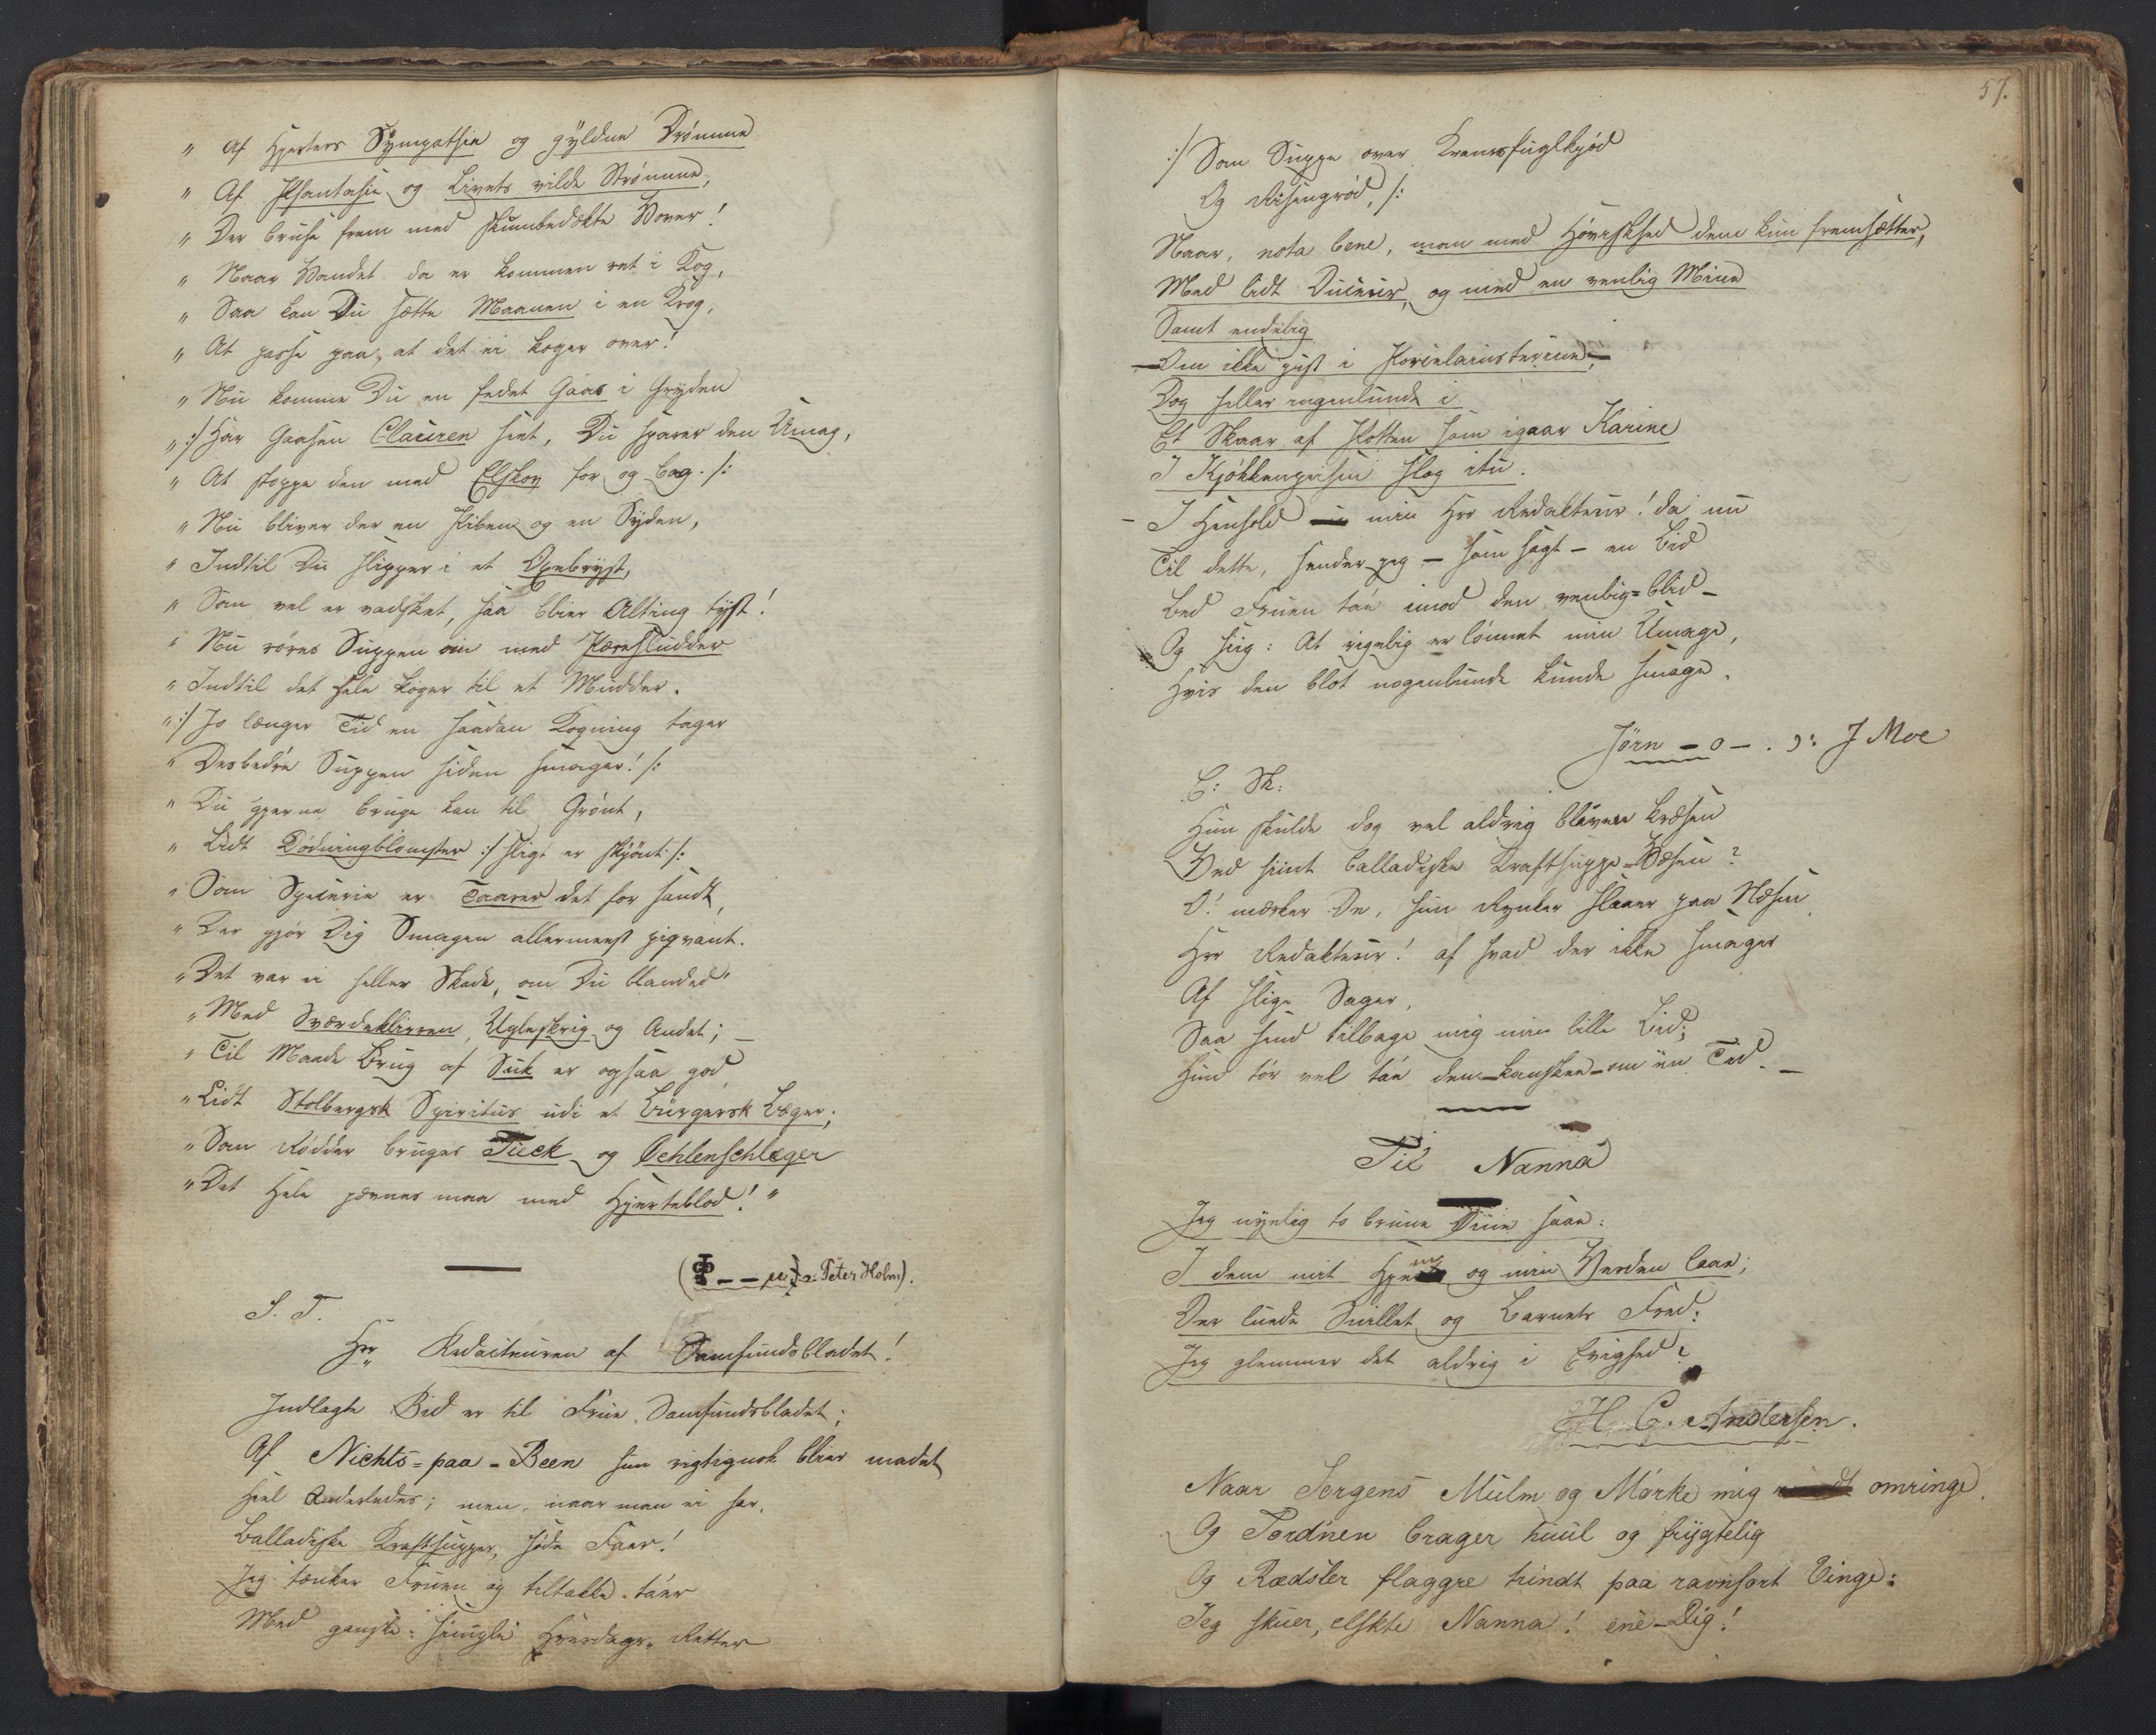 „ Af Hjerters Sympathie og gyldne Drømme
„ Af Phantasie og Livets vilde Strømme,
„ Der bruse frem med skumbedekte Vover!
„ Naar Vandet da er kommen ret i Kog,
„ Saa kan Du sætte Maanen i en Krog,
„ At passe paa, at det ei koger over!
„ Nu komme Du en fedet Gaas i Gryden
„ :/ Har Gaasen Clauren hiet, Du sparer den Umag,
„ At stoppe den med Elskov for og bag. /:
„ Nu bliver der en Piben og en Syden,
„ Indtil Du slipper i et Oxebryst,
„ Som vel er vadsket, saa blier Alting tyst!
„ Nu røres Suppen om med Kæresludder
„ Indtil det Hele koger til et Mudder.
„ :/ Jo længer Tid en saadan Kogning tager
„ Desbedre Suppen siden smager! /:
„ Du gjerne bruge kan til Grønt,
„ Lidt Dødningblomster :/ sligt er skjønt /:
„ Som Specerie er Taarer det for sandt,
„ Der gjør Dig Smagen allermeest piqvant.
„ Det var ei heller Skade, om Du blanded'
„ Med Sværdeklirren, Ugleskrig og Andet; –
„ Til Maade Brug af Suk er ogsaa god
„ Lidt Stolbergsk Spiritus udi et Bürgersk Bæger;
„ Som Rødder bruges Tieck og Oehlenschlæger
„ Det Hele jævnes maa med Hjerteblod! „
(Φ – – μ ɔ: Peter Holm).
S. T.
Hrr Redacteuren af Samfundsbladet!
Indlagte Bid er til Frue Samfundsbladet;
Af Nichts-paa-Been hun rigtignok blier madet
Heel Anderledes; men, naar man ei har
Balladiske Kraftsupper, søde Faer!
Jeg tænker Fruen og tiltakke ta'er
Med ganske simple Hverdags-Retter
57.
:/ Som Suppe over Kramsfuglkjød
Og Risengrød, /:
Naar, nota bene, man med Høviskhed dem kun fremsætter,
Med lidt Douceur, og med en venlig Mine
Samt endelig
– Om ikke just i Porcelainsterrine, –
Dog heller ingenlunde i
Et Skaar af Potten som igaar Karine
I Kjøkkengrisen slog itu.
– I Henhold min Hrr Redakteur! da nu
Til dette, sender jeg – som sagt – en Bid
Bed Fruen ta'e imod den venlig-blid –
Og siig: At rigelig er lønnet min Umage,
Hvis den blot nogenlunde kunde smage.
Jörn – o – . ɔ: J Moe
E: Sk:
Hun skulde dog vel aldrig bleven kræsen
Ved hiint balladiske Kraftsuppe-Væsen?
O! mærker De, hun Rynker slaaer paa Næsen
Hrr Redakteur! af hvad der ikke smager
Af slige Sager,
Saa send tilbage mig min lille Bid;
Hun tør vel ta'e den – kanskee – om iin Tid. –
Til Nanna
Jeg nyelig to brune Øine saae:
I dem mit Hjem og min Verden laae;
Der luede Snillet og Barnets Fred:
Jeg glemmer det aldrig i Evighed!
H. C. Andersen.
Naar Sorgens Mulm og Mørke mig omringe
Og Tord'nen brager huul og frygtelig
Og Rædsler flaggre trindt paa ravnsort Vinge:
Jeg skuer, elskte Nanna! ene Dig!